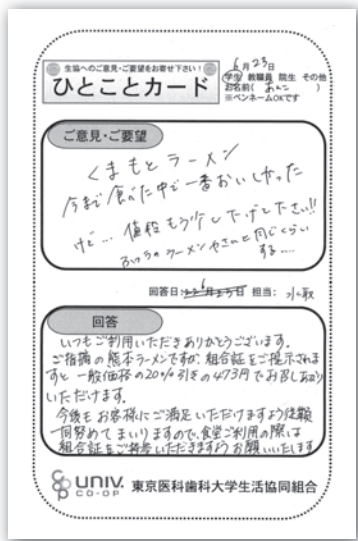 生協へのご意見・ご要望をお寄せ下さい!
ひとことカード
6月23日
学生 教職員 院生 その他
お名前( あんこ )
※ペンネームOKです
ご意見・ご要望
くまもとラーメン
今まで食べた中で一番おいしかった
けど… 値段もう少し下げて下さい!!
ふつうのラーメンやさんと同じくらい
する….
回答日: 6月25日 担当: 水取
回答
いつもご利用いただきありがとうございます。
ご指摘の熊本ラーメンですが、組合証をご提示されま
すと一般価格の20%引きの473円でお召しあがり
いただけます。
今後もお客様にご満足いただけますよう従業員
一同努めてまいりますので、食堂ご利用の際は
組合証をご持参いただきますようお願いいたします
UNIV.
CO-OP
東京医科歯科大学生活協同組合